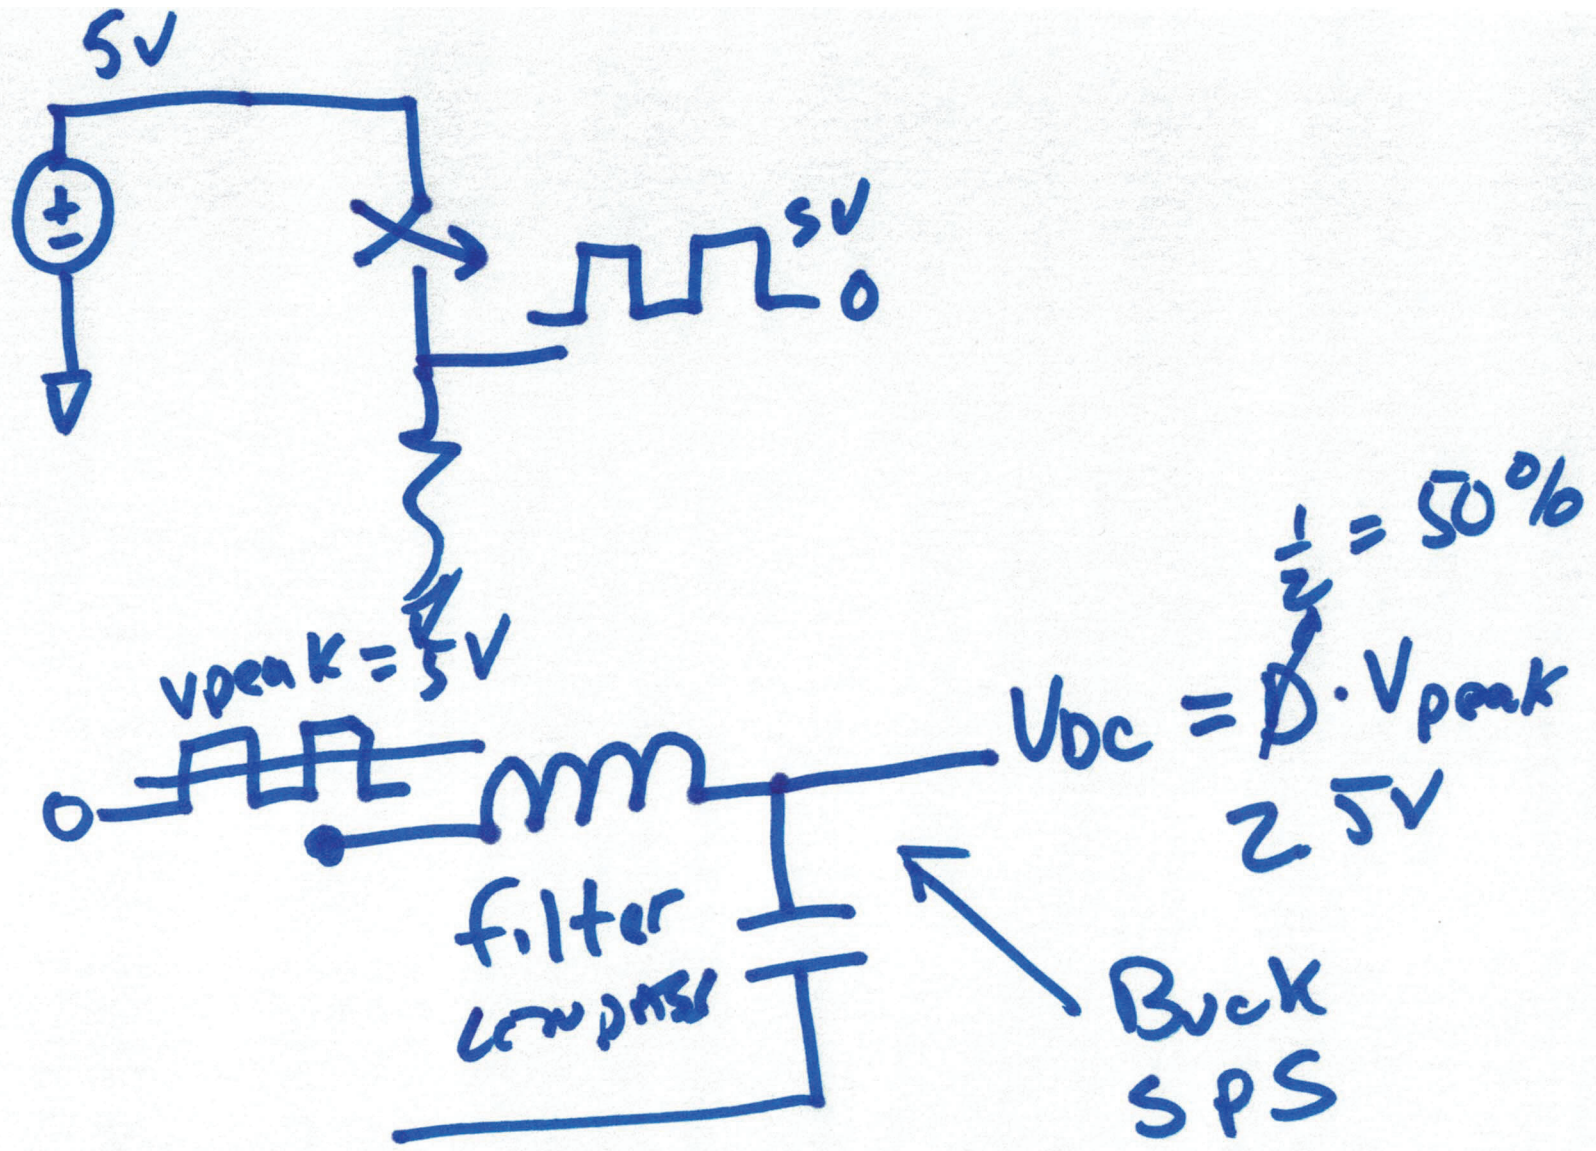 5V
+
-
5V
0
1/2 = 50%
Vpeak = 5V
VDC = D · Vpeak
2 5V
0
filter
LOWPASS
Buck
SPS